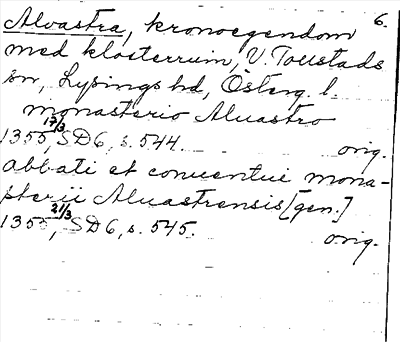 6.
Alvastra, kronoegendom
med klosterruin, V. Tollstads
sn, Lysings hd, Österg. l.
monasterio Aluastro
1355 17/3, SD 6, s. 544. orig.
abbati et conuentui mona-
sterii Aluastrensis [gen.]
1355 21/3, SD 6, s. 545. orig.